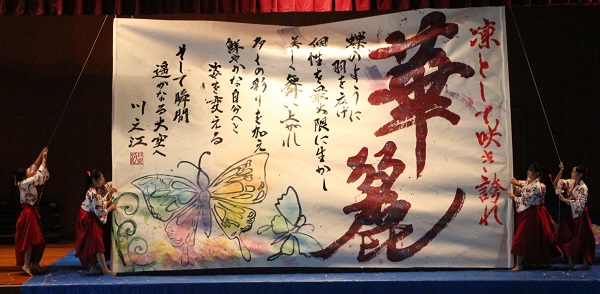 凛として咲き誇れ
華麗
蝶のように
羽を広げ
個性を最大限に生かし
美しく舞い上がれ
多くの彩りを加え
鮮やかな自分へと
姿を変える
そして瞬間
遥かなる大空へ
川之江